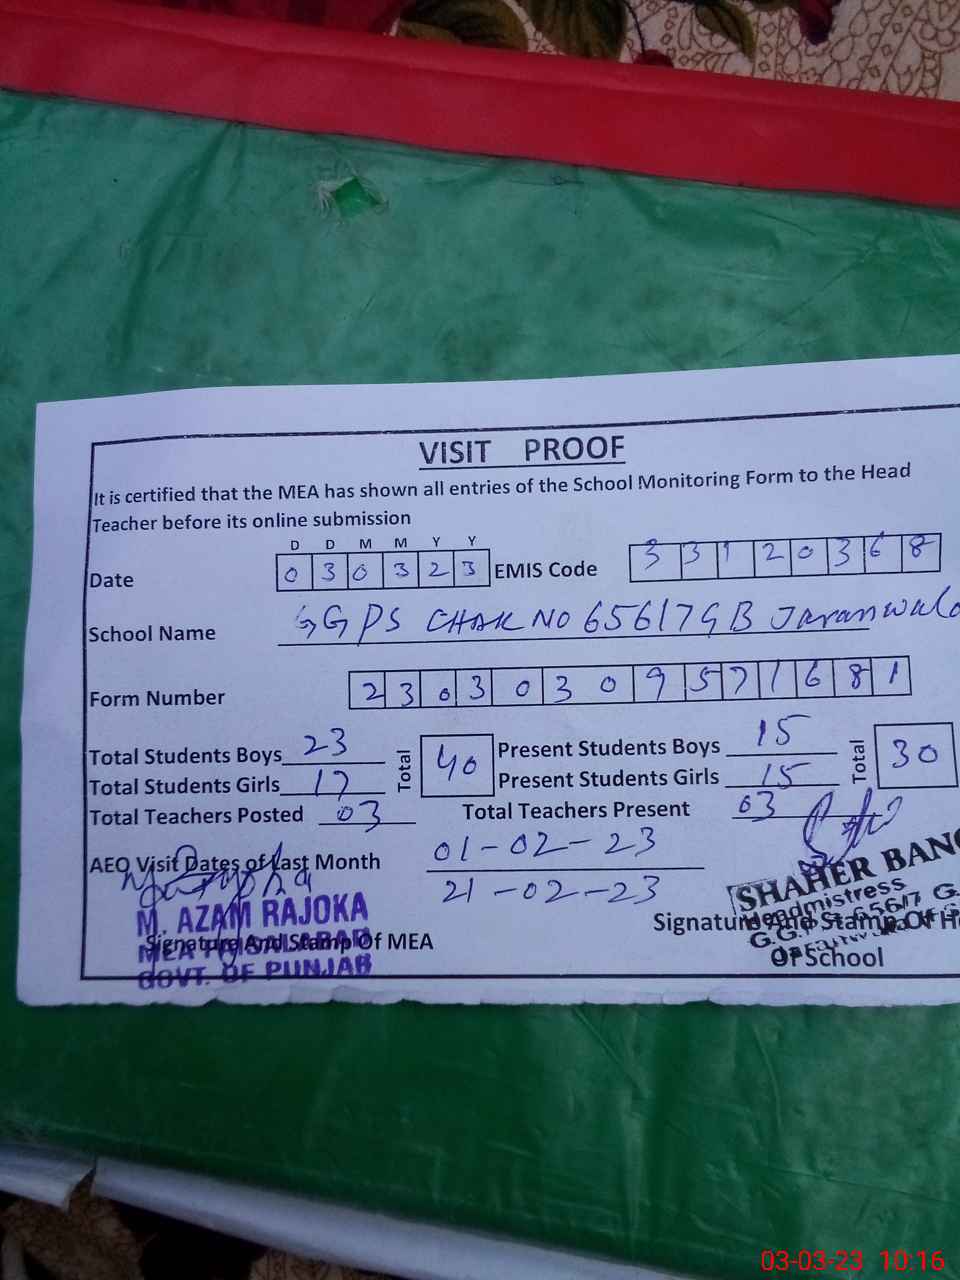 VISIT PROOF
It is certified that the MEA has shown all entries of the School Monitoring Form to the Head
Teacher before its online submission
D D M M Y Y
Date 0 3 0 3 2 3 EMIS Code 3 3 1 2 0 3 6 8
School Name GGPS CHAK NO 656/7 GB Jaranwala
Form Number 2 3 0 3 0 3 0 9 5 7 1 6 8 1
Total Students Boys 23 Total 40 Present Students Boys 15 Total 30
Total Students Girls 17 Present Students Girls 15
Total Teachers Posted 03 Total Teachers Present 03
AEO Visit Dates of Last Month 01-02-23
21-02-23
M. AZAM RAJOKA
MEA FAISALABAD
GOVT. OF PUNJAB
Signature And Stamp Of MEA
SHAHER BANO
Headmistress
G.G.P.S 656/7 G.
Signature And Stamp Of He
Of School
03-03-23 10:16